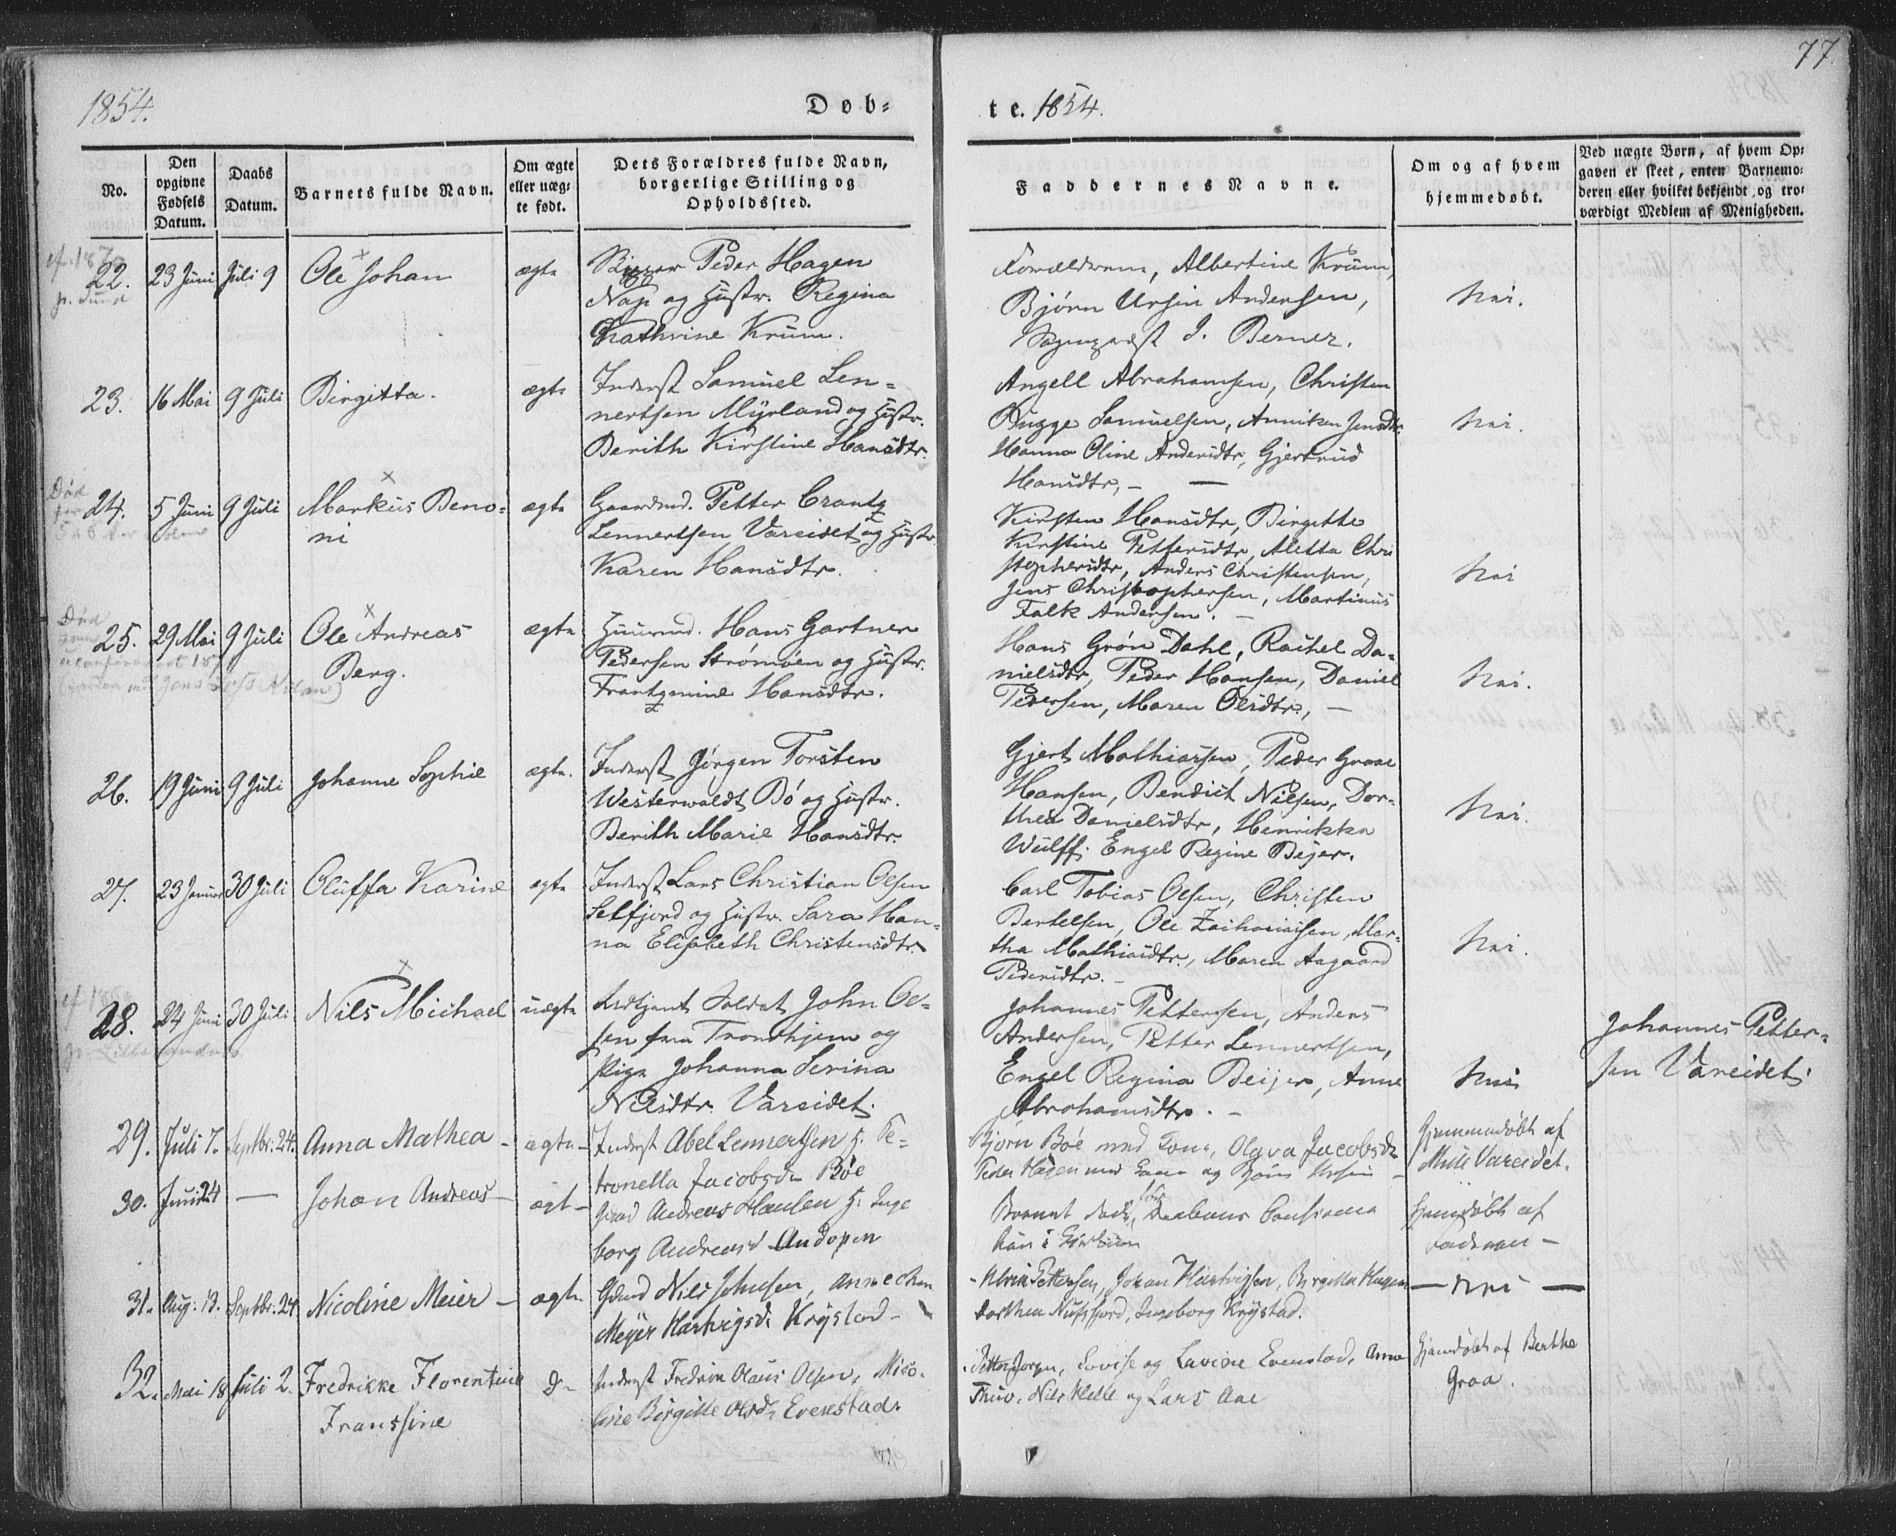 77
1854.
Døb-
te. 1854.
No.
Den opgivne Fødsels Datum.
Daabs Datum.
Barnets fulde Navn.
Om ægte eller uæg- te født.
Dets Forældres fulde Navn, borgerlige Stilling og Opholdssted.
Faddernes Navne.
Om og af hvem hjemmedøbt.
Ved uægte Børn, af hvem Op- gaven er skeet, enten Barnemo- deren eller hvilket bekjendt og tro- værdigt Medlem af Menigheden.
22. 23 Juni Juli 9 Ole Johan ægte Peder Hagen
Nap og Hustr. Regina
Kathrine Krüm.
Forældrene, Albertine Krüm,
Bjørn Ursin Andersen,
J. Berner.
Nei.
23. 16 Mai 9 Juli Birgitta. ægte Inderst Samuel Len-
nertsen Myrland og Hustr.
Berith Kirstine Hansdtr.
Angell Abrahamsen, Christen
Bugge Samuelsen, Anniken Jensdtr.
Hanna Oline Andersdtr, Gjertrud
Hansdtr, —
Nei.
Død
24. 5 Juni 9 Juli Markus Beno-
ni
ægte Gaardmd. Petter Crantz
Lennertsen Vareidet og Hustr.
Karen Hansdtr.
Kirsten Hansdtr, Birgitte
Kirstine Pettersdtr, Aletta Chri
stophersdtr, Anders Christensen,
Jens Christophersen, Martinus
Falk Andersen. —
Nei
Død
25. 29 Mai 9 Juli Ole Andreas
Berg.
ægte Huusmd. Hans Gartner
Pedersen Strømøen og Hustr.
Frantzmine Hansdtr.
Hans Grøn Dahl, Rachel Da-
nielsdtr, Peder Hansen, Daniel
Pedersen, Maren Olsdtr, —
Nei.
26. 19 Juni 9 Juli Johanne Sophie ægte. Inderst Jørgen Torsten
Westerwaldt Bö og Hustr.
Berith Marie Hansdtr.
Gjert Mathiassen, Peder Graae
Hansen, Bendict Nilsen, Dor-
thea Danielsdtr, Henrikka
Wulff, Engel Regine Beijer.
Nei.
27. 23 Januar 30 Juli Oluffa Karine ægte Inderst Lars Christian Olsen
Selfjord og Hustr. Sara Han-
na Elisabeth Christensdtr.
Carl Tobias Olsen, Christen
Bertelsen, Ole Zachariasen, Mar-
tha Mathiasdtr., Maren Aagaard
Pedersdtr. —
Nei.
28. 24 Juni 30 Juli Nils Michael uægte Soldat John Ol-
sen fra Trondhjem og
Pige Johanna Serina
Nilsdtr. Vareidet.
Johannes Pettersen, Anders
Andersen, Petter Lennertsen,
Engel Regina Beijer, Anne
Abrahamsdtr. —
Nei
Johannes Petter-
sen Vareidet.
29. Juli 7. Septbr. 24. Anna Mathea — ægte — Inderst Abel Lennertsen H. Pe-
tronella Jacobsd. Böe
Bjørn Böe med Kone, Olava Jacobsd.
Peder Hagen med Kone og Bjørn Ursin —
Hjemmedøbt af
Mille Vareidet.
30. Juni 24 — Johan Andreas — ægt — Andreas Hansen H. Inge
borg Andreasd Andopen
Hjemdøbt af
31. Aug. 13. Septbr. 24. Nicoline Meier — ægte Gmd Nils Johnsen, Annechen
Meyer Hartvigsd. Krystad —
Ulrik Pettersen, Johan Hartvigsen, Birgitta Hagen
Dorthea Nufsfjord, Ingeborg Krystad.
— Nei —
32. Mai 18 Juli 2. Fredrikke Florentine
Franssine
D— Inderst Fredrik Olaus Olsen, Nico-
line Birgitte Olsd. Evenstad.
Petter Jørgen, Lovise og Lavine Evenstad, Anne
Thuv. Nils Kelle og Lars Aae
Hjemdøbt af Berthe
Graa.